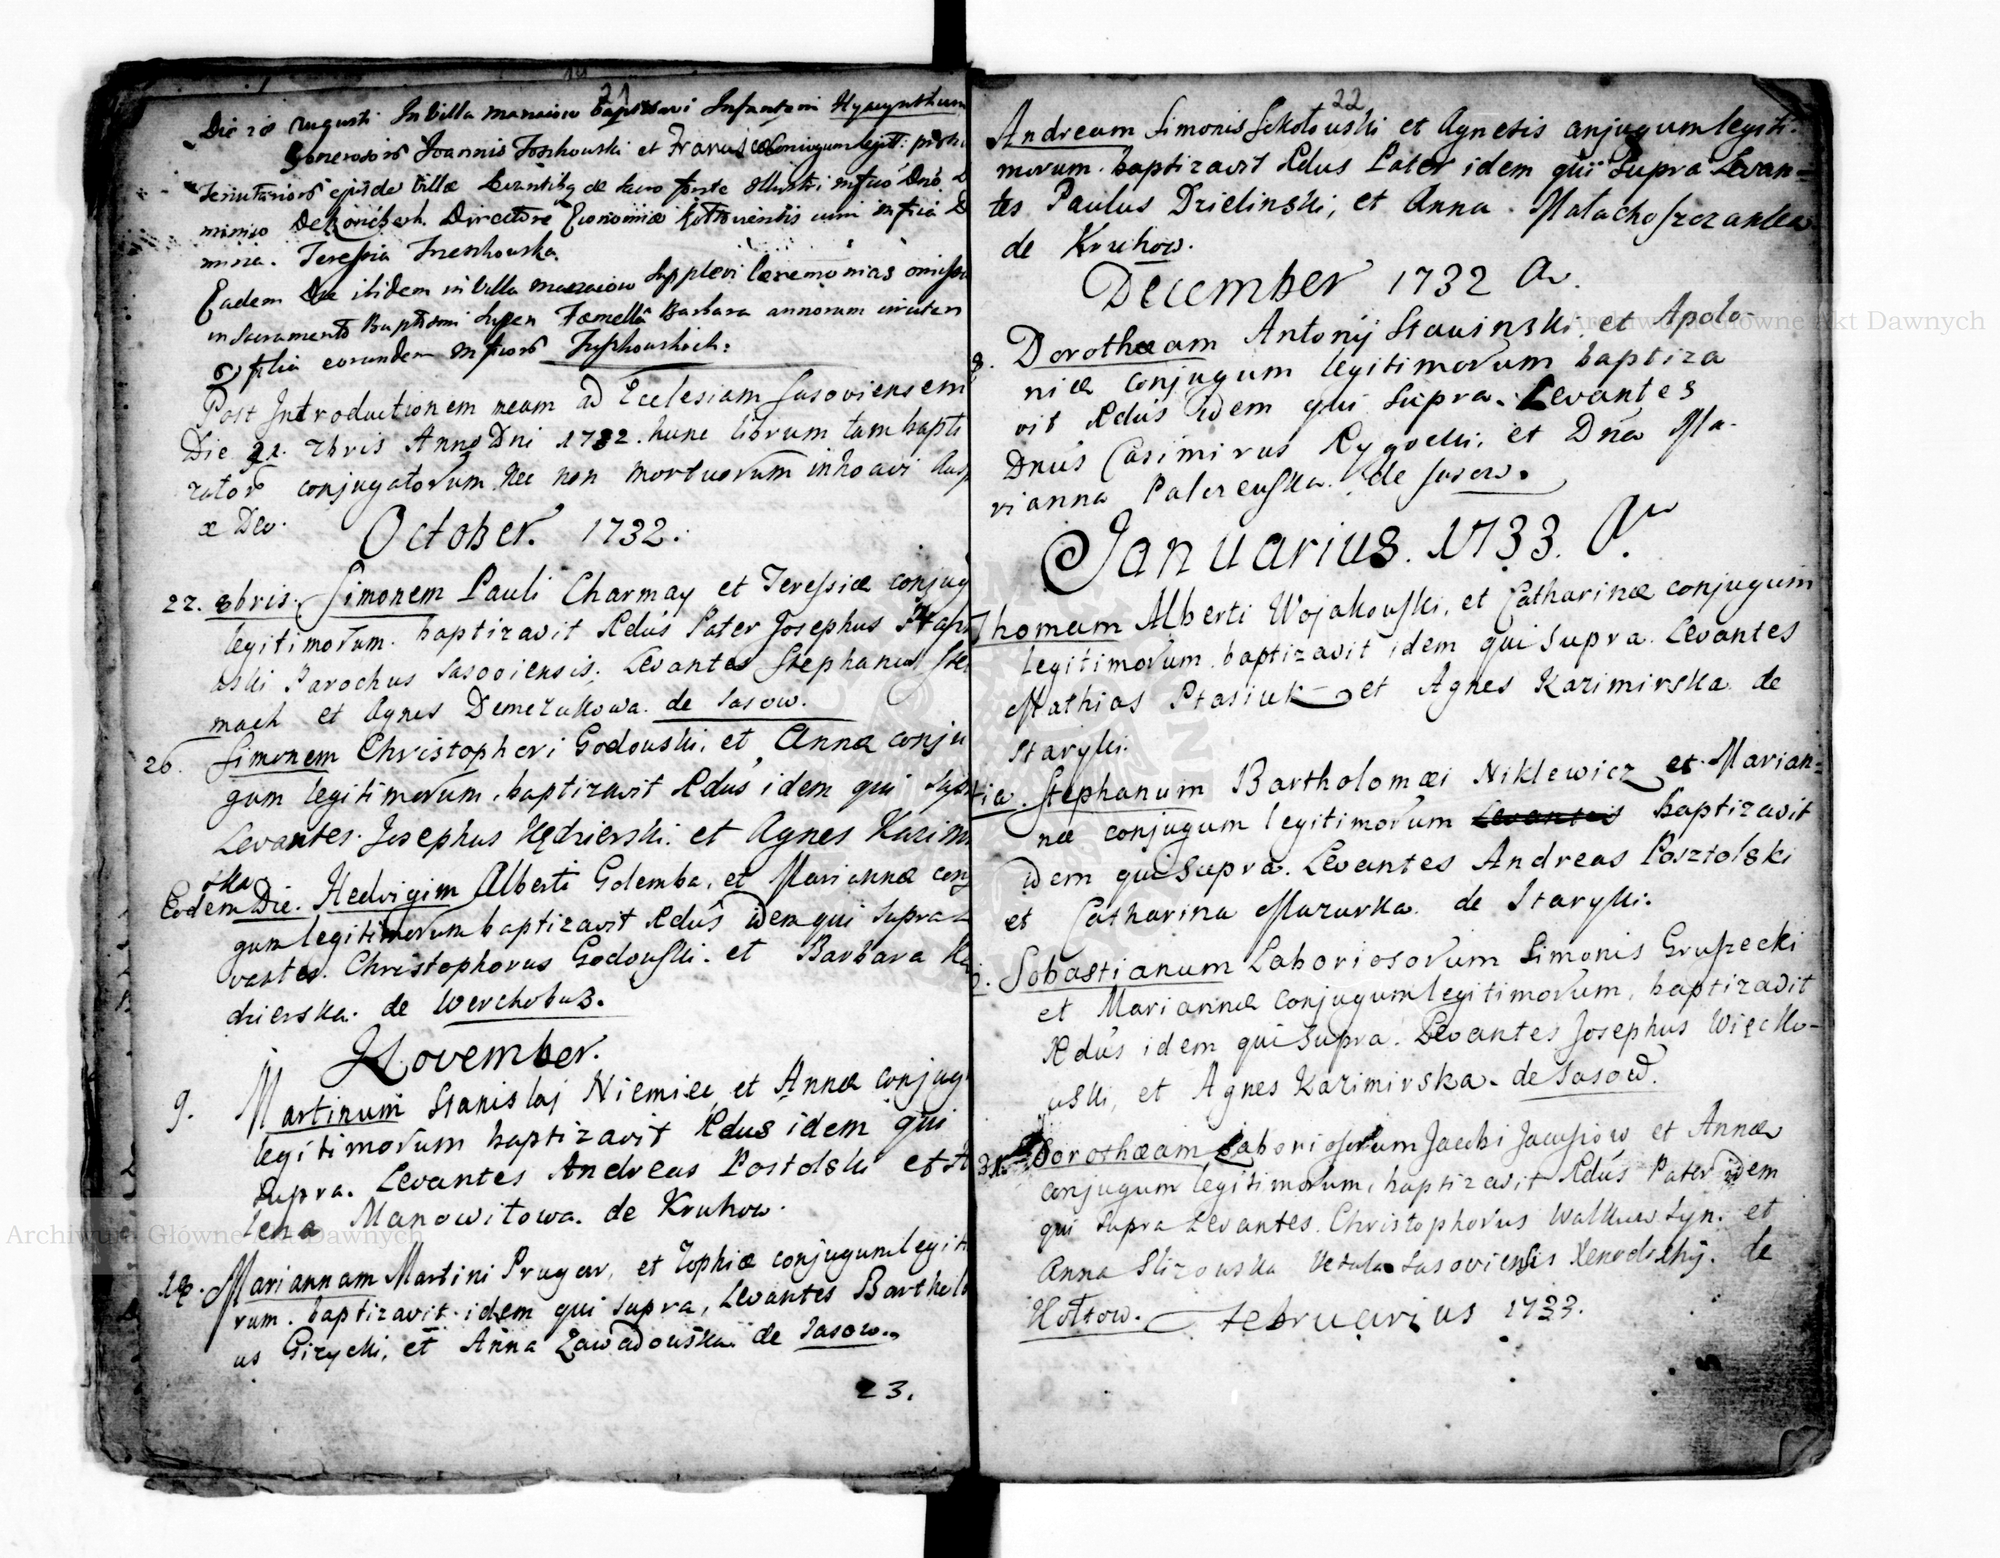 21
Die 28 Augusti In Villa manaiow baptisavi Infantem Hyacynthum
Generosorō Joannis Joskowski et Francisca Coniugum legit:
Tenutariorō ejusde Villæ Levantibq de sacro fonte Illustri mfico Dnō
mimico Director Economiæ cum mfica D
minia. Teressia
Eadem Die ibidem in Villa manaiow supplevi Cæremonias omissa
in Sacramento Baptismi super Fæmella Barbara annorum
filia eorundem mficorō
Post Introductionem meam ad Ecclesiam Sasoviensem
Die 21. 7bris Anno Dni 1732. hunc librum tam bapti
zatorō conjugatorum nec non mortuorum inhoavi
æ Deo.
October. 1732.
22. 8bris. Simonem Pauli Charmay et Teressiæ conjug
legitimorum. baptizavit Rdus Pater Josephus
uski Parochus Sasoviensis. Levantes Stephanus
mach et Agnes Demczukowa. de Sasow.
26. Simonem Christopheri Godouski, et Annæ conju
gum legitimorum, baptizavit Rdus idem qui supra
Levantes. Josephus Kędzierski. et Agnes Kazimi
ska.
Eodem Die. Hedvigim Alberti Golemba, et Mariannæ conj
gum legitimorum baptizavit Rdus idem qui supra
vantes. Christophorus Godouski. et Barbara
dzierska. de Werchobuz.
November.
9. Martinum Stanislaj Niemiec, et Annæ conjug
legitimorum baptizavit Rdus idem qui
supra. Levantes Andreas Postolski et
lena Manowitowa. de Kruhow.
Mariannam Martini Prugar, et Zophiæ conjugum legit
rum. baptizavit. idem qui supra, Levantes Barthol
us Gizycki, et Anna Zawadouska. de Sasow.
23.
22
Andream Simonis Sokołouski et Agnetis conjugum legiti-
morum. baptizavit Rdus Pater idem qui supra Levan=
tes Paulus Dzielinski, et Anna. Małachoszczanka
de Kruhow.
December 1732 A.
8. Dorotheam Antonij Stausinski, et Apolo-
niæ conjugum legitimorum baptiza
vit Rdus idem qui supra. Levantes
Dnus Casimirus Rygocki, et Dna Ma-
rianna Palczeuska. de Sasow.
Januarius. 1733. A.
Thomam Alberti Wojakouski, et Catharinæ conjugum
legitimorum. baptizavit idem qui supra. Levantes
Mathias Ptasiuk et Agnes Kazimirska de
Stanyki.
Stephanum Bartholomæi Niklewicz et Marian=
næ conjugum legitimorum Levantes baptizavit
idem qui supra. Levantes Andreas Posztolski
et Catharina Mazurka. de Stanyki.
Sobastianum Laboriosorum Simonis Gruszecki
et Mariannæ conjugum legitimorum, baptizavit
Rdus idem qui supra. Levantes Josephus Więcko-
uski, et Agnes Kazimirska. de Sasow.
31. Dorotheam Laboriosorum Jacobi et Annæ
conjugum legitimorum, baptizavit Rdus Pater idem
qui supra Levantes. Christophorus Walkuw Syn. et
Anna Slizouska Vetula Sasoviensis Xenodochij. de
Kołtow. Februarius 1733.
Archiwum Główne Akt Dawnych
Archiwum Główne Akt Dawnych